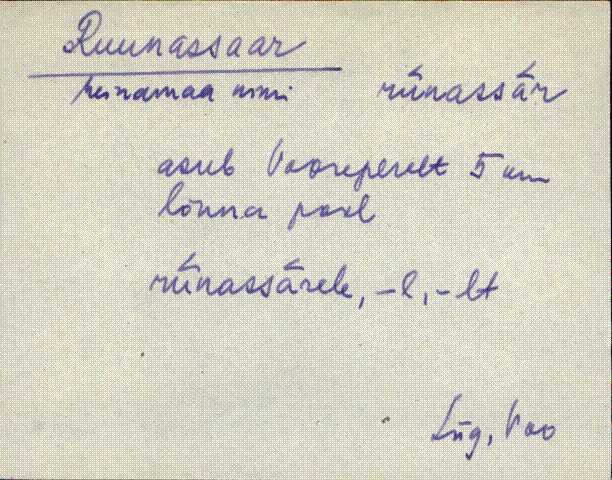 Ruunassaar
heinamaa nimi rūnassār
asub Vooreperelt 5 km
lõnna pool
rūnassārele, -l, -lt
Lüg, Voo